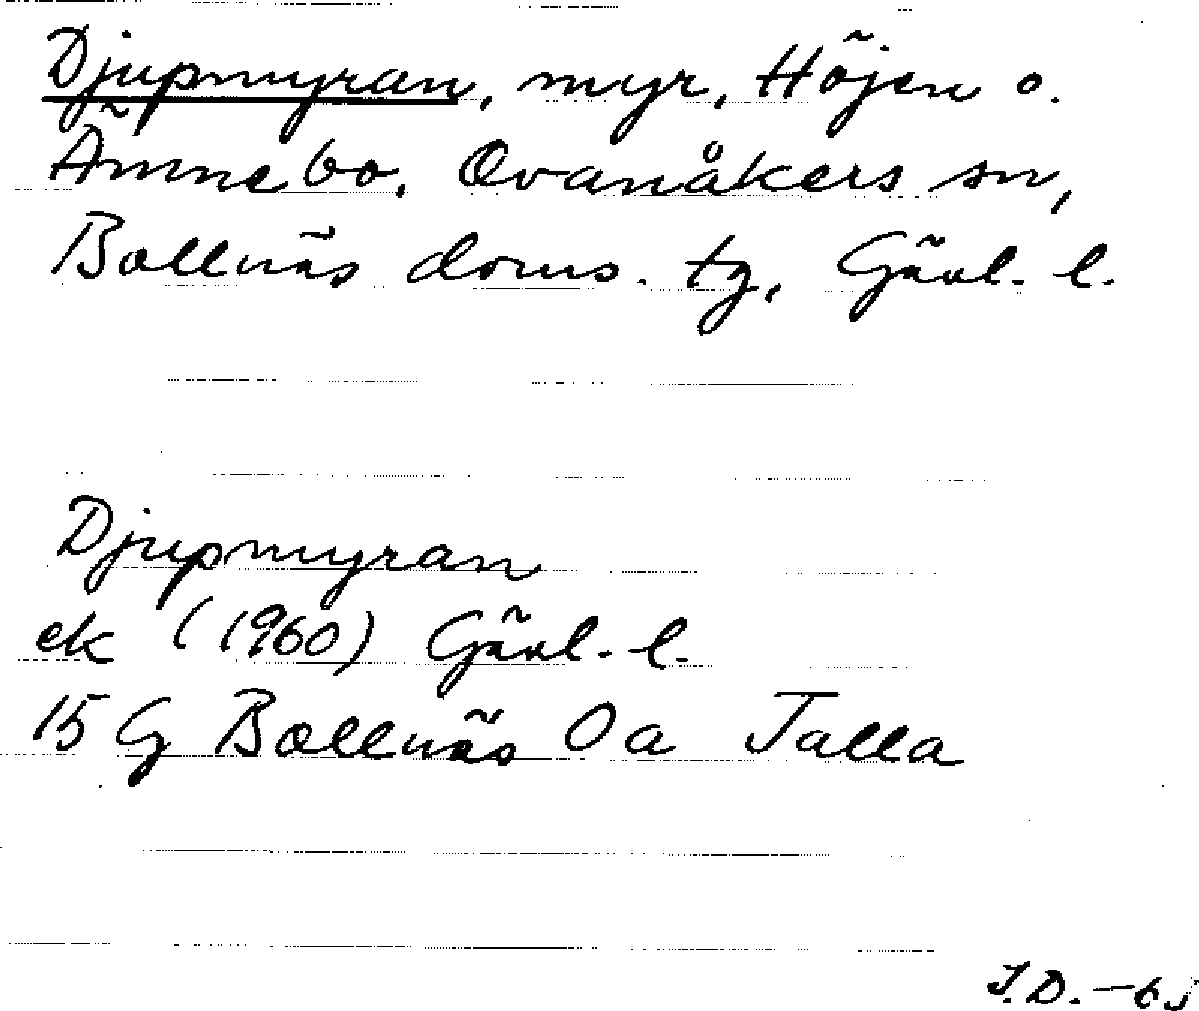 Djupmyran, myr, Höjen o.
Ämnebo, Ovanåkers sn,
Bollnäs doms. tg, Gävl. l.
Djupmyran
ek (1960) Gävl. l.
15 G Bollnäs Oa Talla